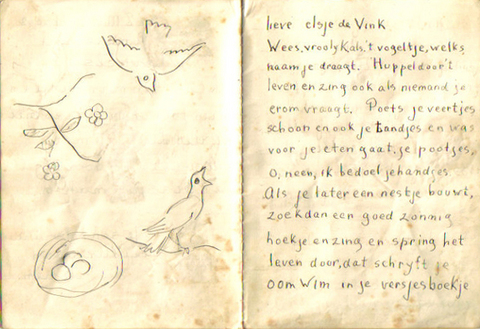 lieve elsje de Vink
Wees, vrooly kals,'t vogeltje, welks
naam je draagt. Huppel door 't
leven en zing ook als niemand je
erom vraagt. Poets je veertjes
schoon en ook je tandjes en was
voor je eten gaat, je pootjes,
o, neen, ik bedoel je handjes
Als je later een nestje bouwt,
zoek dan een goed zonnig
hoekje en zing en spring het
leven door, dat schryft je
oom Wim in je versjesboekje